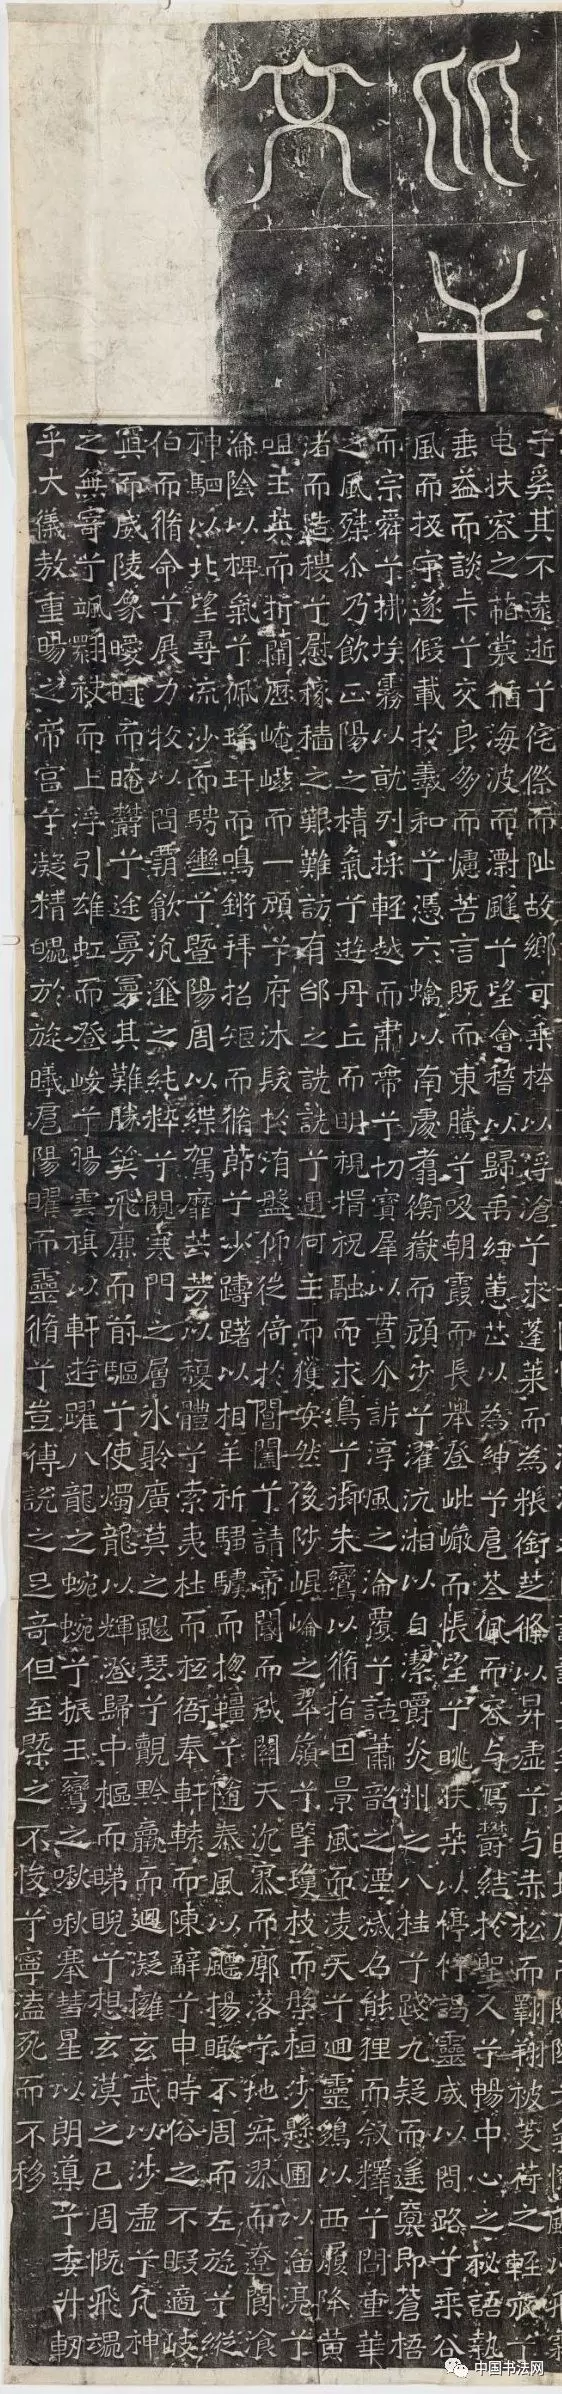 比干
文
子奚其不遠逝兮侘傺而阯故鄉可乘桴以浮滄兮求蓬萊而為粻銜芝條以昇虛兮与赤松而翱翔被芰荷之輕衣兮
曳扶容之葩裳循海波而漂颻兮望會稽以歸禹紉蕙茝以為紳兮扈荃佩而容与寫鬱結於聖人兮暢中心之秘語執
垂益而談卡兮交良朋而爞苦言既而東騰兮吸朝霞而長舉登岵巘而悵望兮眺扶桑以停佇謁靈威以問路兮乘谷
風而扳宇遂假載於羲和兮憑六螭以南處翥衡嶽而顧步兮濯沅湘以自潔嚼炎州之八桂兮踐九疑而遙裹即蒼梧
而宗舜兮拂埃霧以就列採輕越而肅帶兮切寶犀以貫介訴淳風之淪覆兮話蕭韶之湮滅召熊狸而叙釋兮問重華
之風桀尒乃飲正陽之精氣兮遊丹丘而明視揖祝融而求鳥兮御朱鸞以脩指因景風而凌天兮迴靈鶉以西履降黃
渚而造稷兮慰稼穡之艱難訪有邰之詵詵兮遇何主而獲安然後陟崐崘之翠嶺兮擥瓊枝而槃桓步懸圃以溜湸兮
咀玉英而折蘭歷崦嵫而一頋兮府沐髮於洧盤仰徙倚於閶闔兮請帝閽而啟關天沈寥而廓落兮地寂漻而遼闊湌
淪陰以椑氣兮佩瑤玕而鳴鏘拜招矩而脩節兮少躊躇以相羊祈騶驥而揔韁兮隨泰風以飄揚瞰不周而左旋兮縱
神駟以北望尋流沙而騁轡兮暨陽周以緤駕靡芸芳以馥體兮索夷杜而祗衙奉軒轅而陳辭兮申時俗之不暇適岐
伯而脩命兮展力牧以問霸歙沆瀣之純粹兮覿寒門之層氷聆廣莫之颼瑟兮覿黔羸而迴凝擁玄武以涉虛兮亢神
冥而威陵象曖曖而晻鬱兮途曼曼其難勝笑飛廉而前驅兮使燭龍以輝澄歸中樞而睇睨兮想玄漠之已周慨飛魂
之無寄兮颯翻袂而上浮引雄虹而登峻兮揚雲旗以軒遊躍八龍之蜿蜿兮振玉鸞之啾啾搴彗星以朗導兮委升軔
乎大儀敖重暘之帝宮兮凝精魄於旋曦扈陽曜而靈脩兮豈傅說之足奇但至槩之不悛兮寧溘死而不移
中国书法网